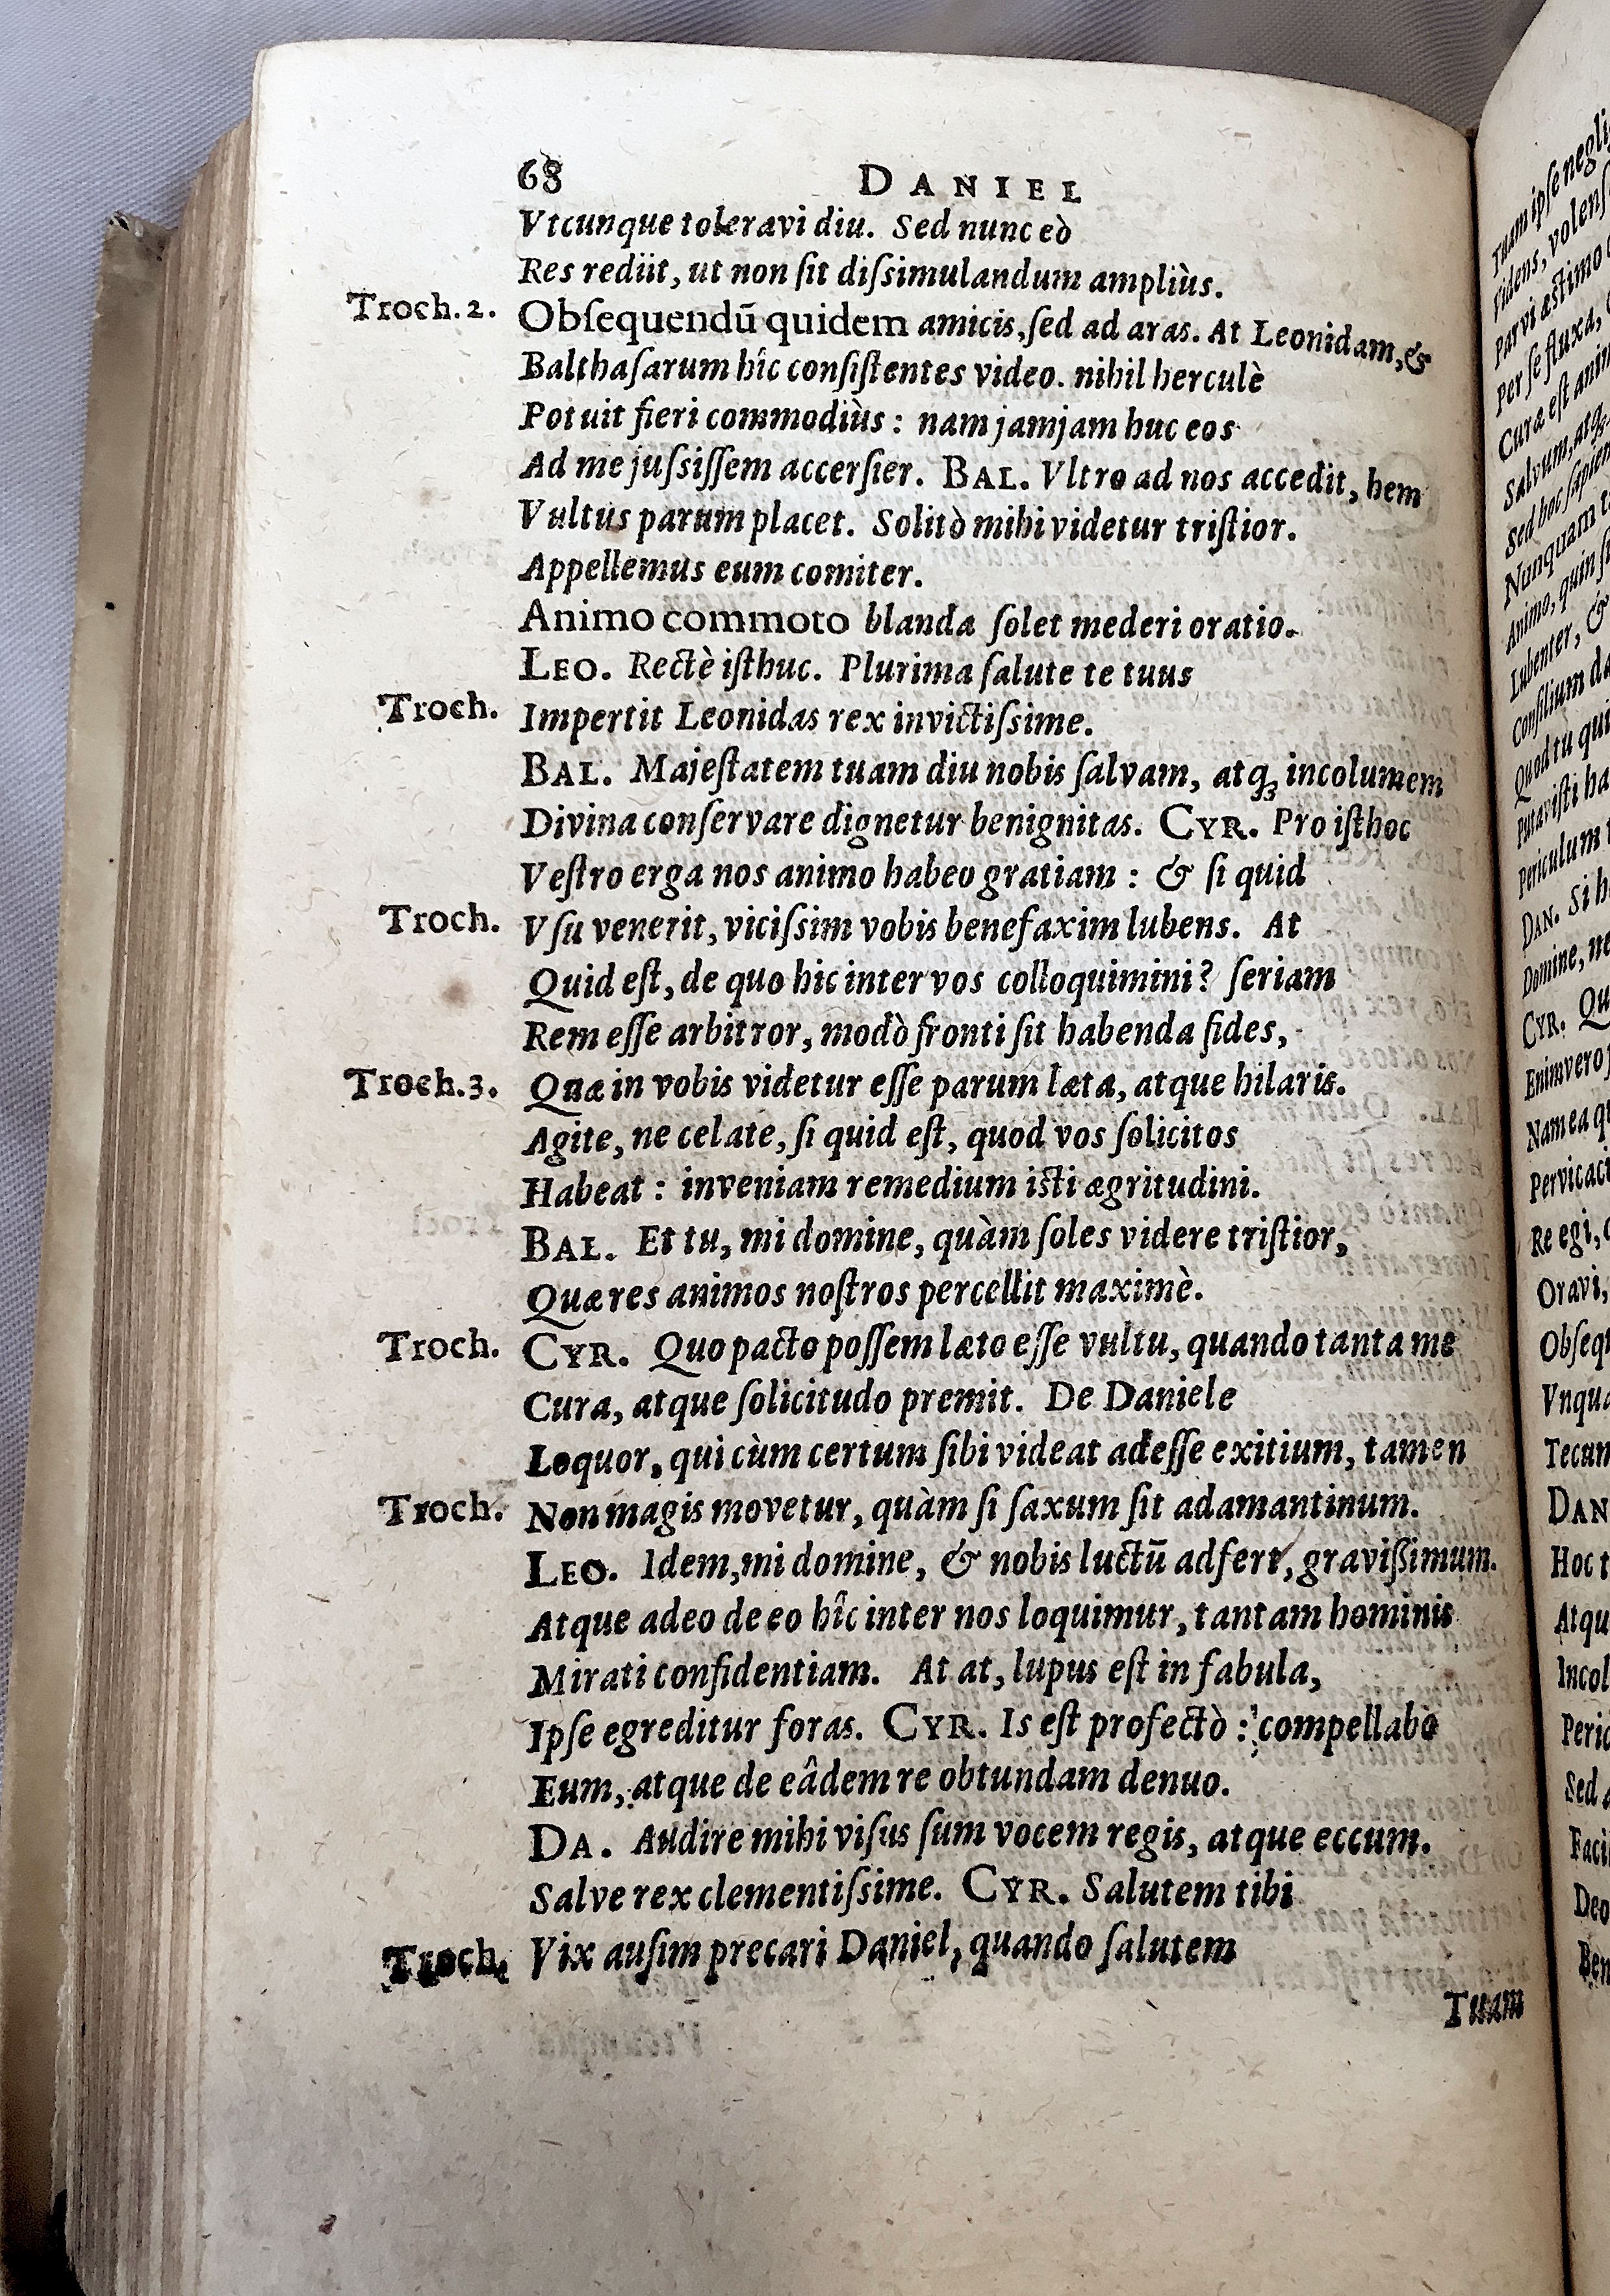 68 DANIEL
Vtcunque toleravi diu. Sed nunc eò
Res rediit, ut non ſit diſsimulandum ampliùs.
Troch. 2. Obſequendū quidem amicis, ſed ad aras. At Leonidam, &
Balthaſarum hîc conſiſtentes video. nihil herculè
Potuit fieri commodiùs : nam jamjam huc eos
Ad me juſsiſſem accerſier. BAL. Vltro ad nos accedit, hem
Vultus parum placet. Solitò mihi videtur triſtior.
Appellemus eum comiter.
Animo commoto blanda ſolet mederi oratio.
LEO. Rectè iſthuc. Plurima ſalute te tuus
Troch. Impertit Leonidas rex invictiſsime.
BAL. Majeſtatem tuam diu nobis ſalvam, atq; incolumem
Divina conſervare dignetur benignitas. CYR. Pro iſthoc
Veſtro erga nos animo habeo gratiam : & ſi quid
Troch. Vſu venerit, viciſsim vobis benefaxim lubens. At
Quid eſt, de quo hic inter vos colloquimini? ſeriam
Rem eſſe arbitror, modò fronti ſit habenda fides,
Troch. 3. Quæ in vobis videtur eſſe parum læta, atque hilaris.
Agite, ne celate, ſi quid eſt, quod vos ſolicitos
Habeat : inveniam remedium iſti ægritudini.
BAL. Et tu, mi domine, quàm ſoles videre triſtior,
Quæ res animos noſtros percellit maximè.
Troch. CYR. Quo pacto poſſem læto eſſe vultu, quando tanta me
Cura, atque ſolicitudo premit. De Daniele
Loquor, qui cùm certum ſibi videat adeſſe exitium, tamen
Troch. Non magis movetur, quàm ſi ſaxum ſit adamantinum.
LEO. Idem, mi domine, & nobis luctū adfert, graviſsimum.
Atque adeo de eo hîc inter nos loquimur, tantam hominis
Mirati confidentiam. At at, lupus eſt in fabula,
Ipſe egreditur foras. CYR. Is eſt profectò : compellabo
Eum, atque de eâdem re obtundam denuo.
DA. Audire mihi viſus ſum vocem regis, atque eccum.
Salve rex clementiſsime. CYR. Salutem tibi
Troch. Vix auſim precari Daniel, quando ſalutem
Tuam
Tuam ipſe negli
Videns, volenſ
Parvi æſtimo
Per ſe fluxa,
Curæ eſt anim
Salvum, atq;
Sed hoc ſapien
Nunquam t
Animo, quin ſu
Lubenter, &
Conſilium da
Quod tu qui
Putaviſti ha
Periculum
DAN. Si h
Domine, ne
CYR. Qu
Enimvero
Nam ea q
Pervicaci
Re egi,
Oravi,
Obſeq
Vnqua
Tecum
DAN
Hoc t
Atqu
Incol
Peric
Sed
Faci
Deo
Ben